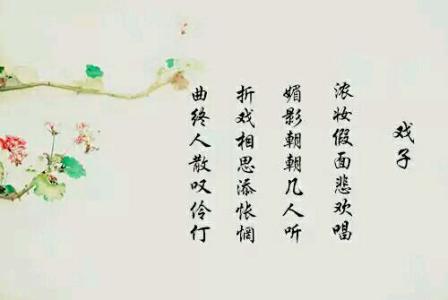 戏子
浓妆假面悲欢唱
媚影朝朝几人听
折戏相思添怅惘
曲终人散叹伶仃